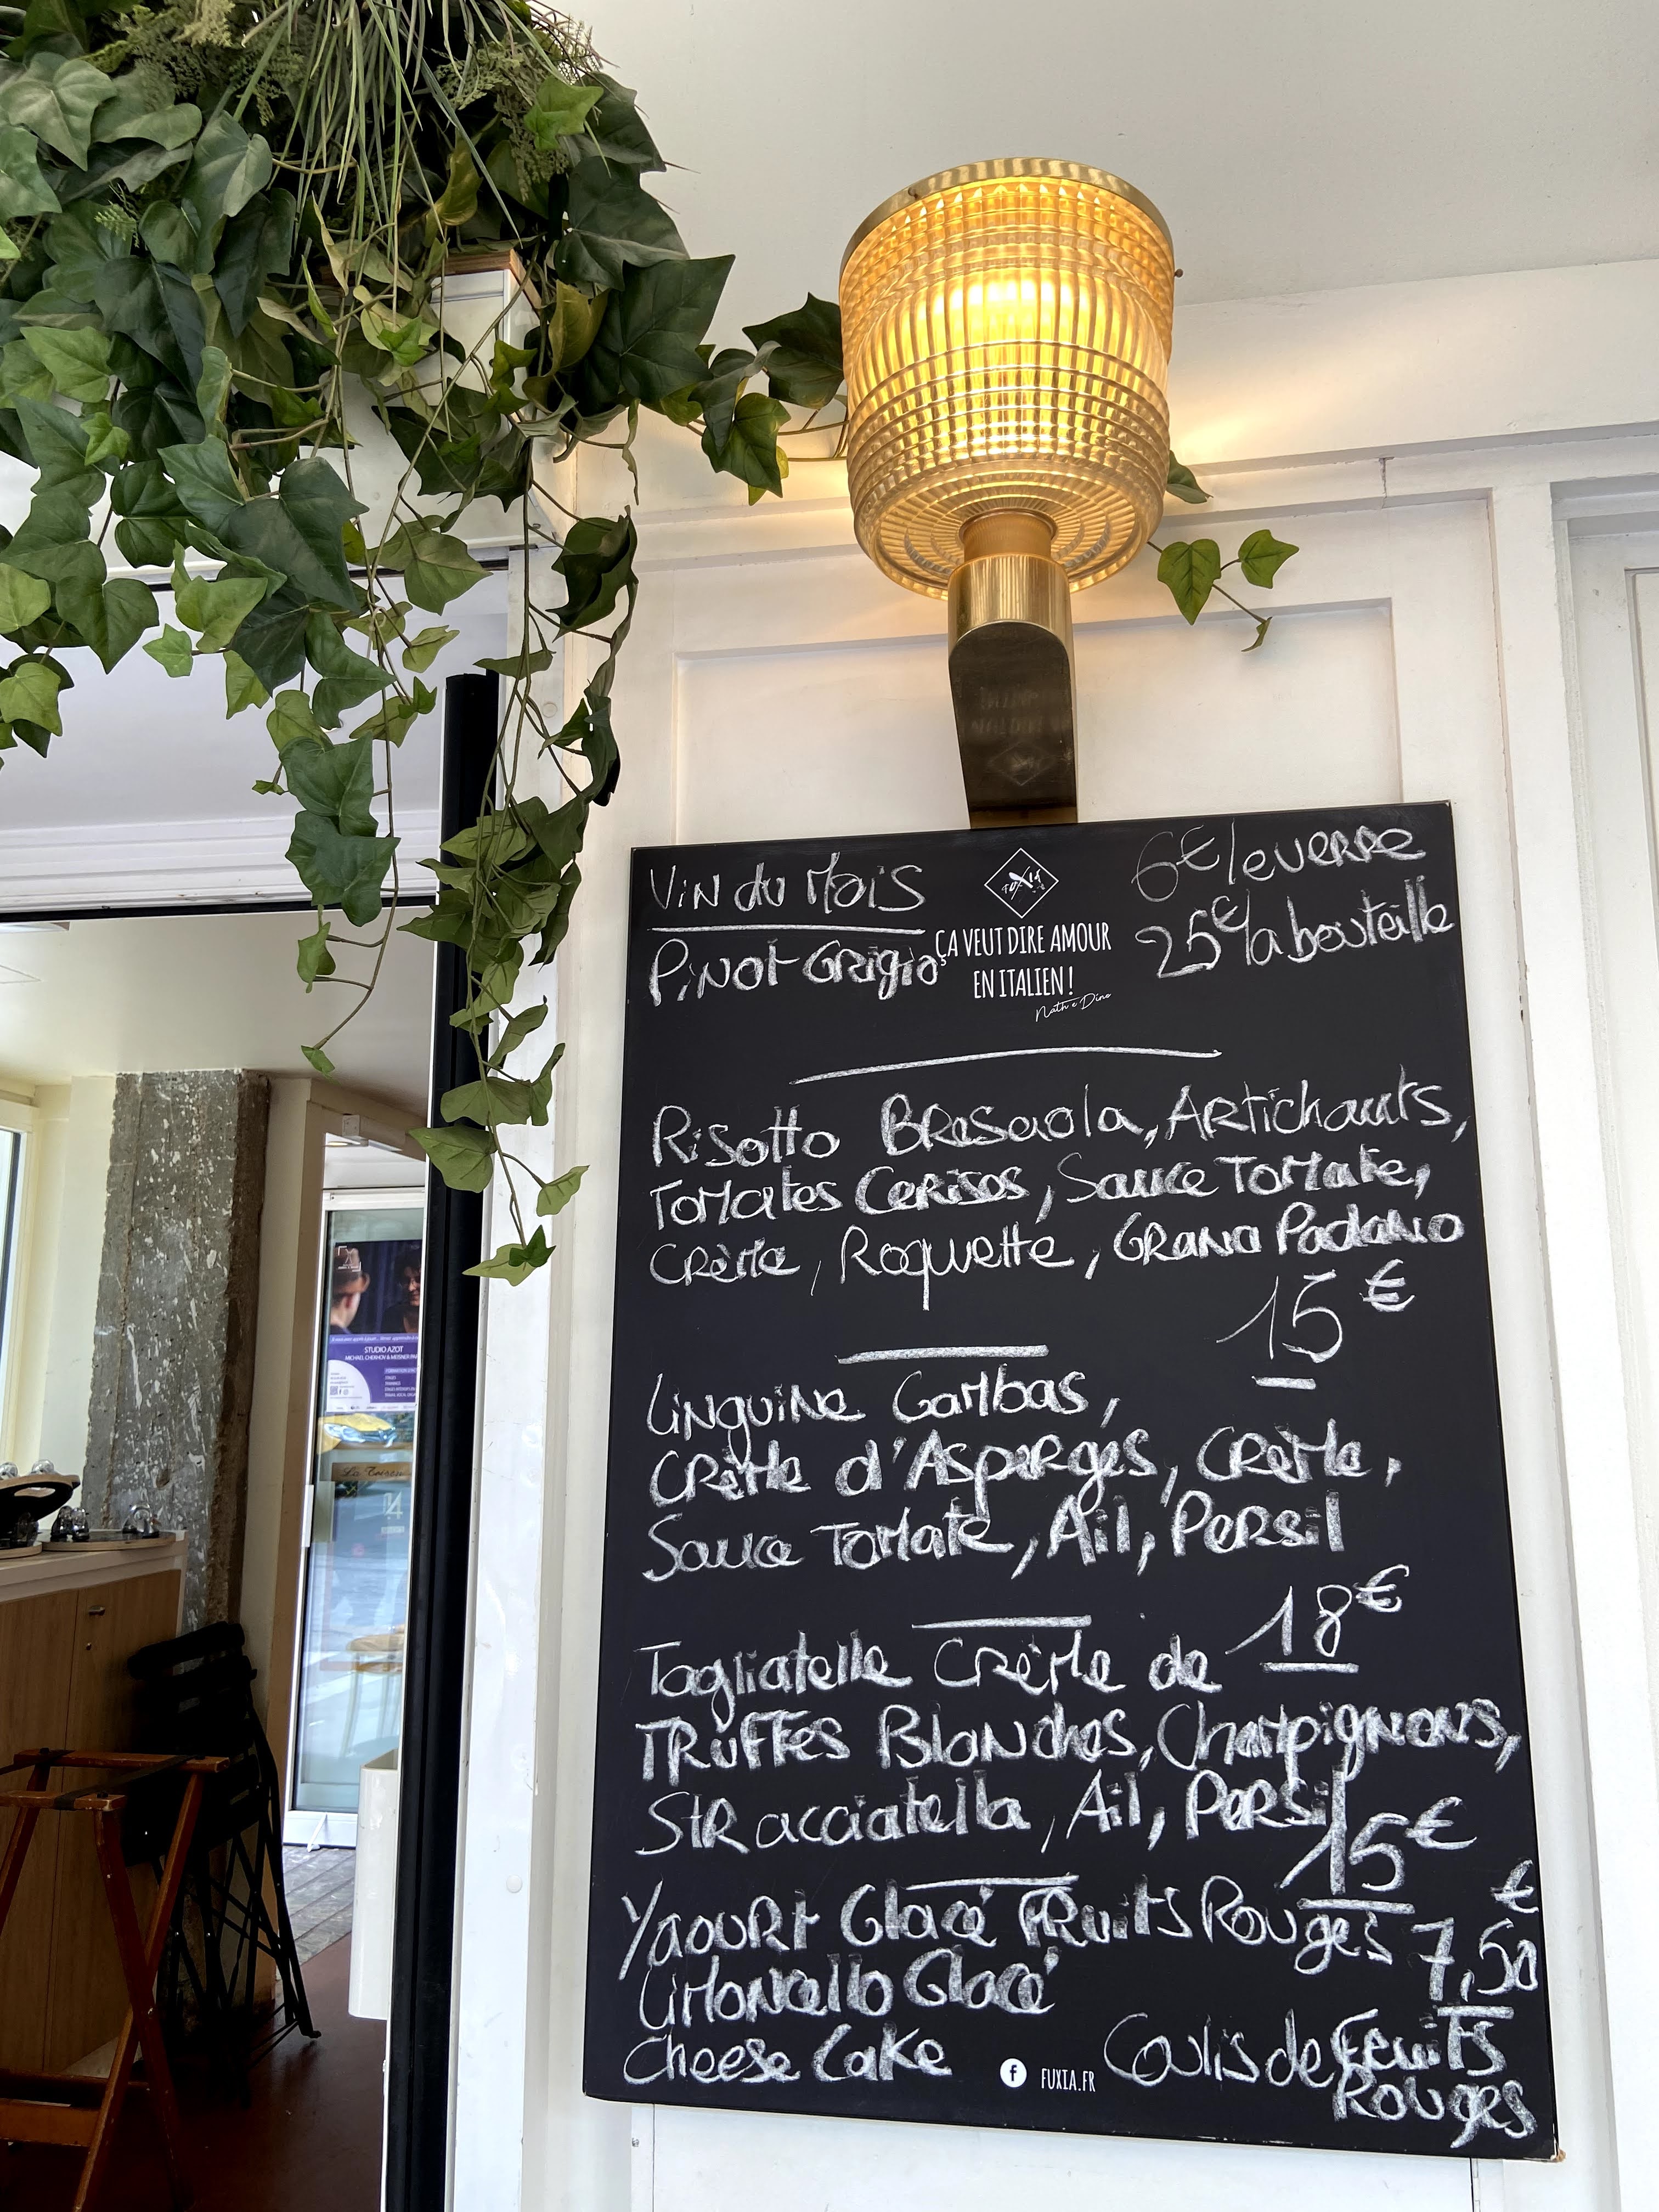 Vin du Mois
Pinot Grigio
FUXIA
ÇA VEUT DIRE AMOUR
EN ITALIEN !
Nath e Dino
6€ le verre
25€ la bouteille
Risotto Bresaola, Artichauts,
Tomates Cerises, Sauce Tomate,
Crème, Roquette, Grana Padano
15€
Linguine Gambas,
Crème d'Asperges, Crème,
Sauce Tomate, Ail, Persil
18€
Tagliatelle Crème de
Truffes Blanches, Champignons,
Stracciatella, Ail, Persil
15€
Yaourt Glacé Fruits Rouges 7,50€
Limoncello Glacé
Cheese Cake Coulis de Fruits
Rouges
FUXIA.FR
STUDIO AZOT